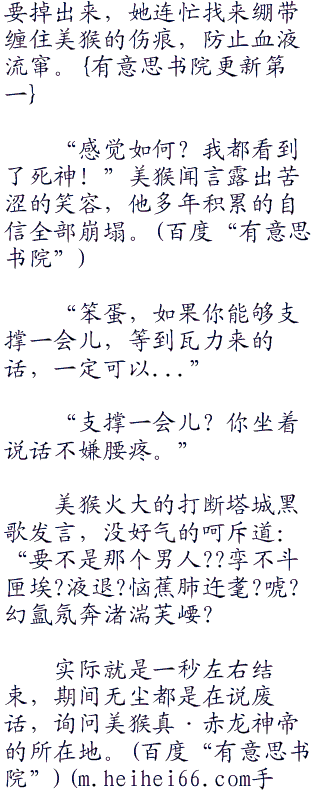 要掉出来，她连忙找来绷带
缠住美猴的伤痕，防止血液
流窜。{有意思书院更新第
一}
“感觉如何？我都看到
了死神！”美猴闻言露出苦
涩的笑容，他多年积累的自
信全部崩塌。(百度“有意思
书院”)
“笨蛋，如果你能够支
撑一会儿，等到瓦力来的
话，一定可以...”
“支撑一会儿？你坐着
说话不嫌腰疼。”
美猴火大的打断塔城黑
歌发言，没好气的呵斥道：
“要不是那个男人??孪不斗
匣埃?液退?恼蕉肺迕耄?唬?
幻氩氖奔渚湍芙崾?
实际就是一秒左右结
束，期间无尘都是在说废
话，询问美猴真·赤龙神帝
的所在地。(百度“有意思书
院”)(m.heihei66.com手